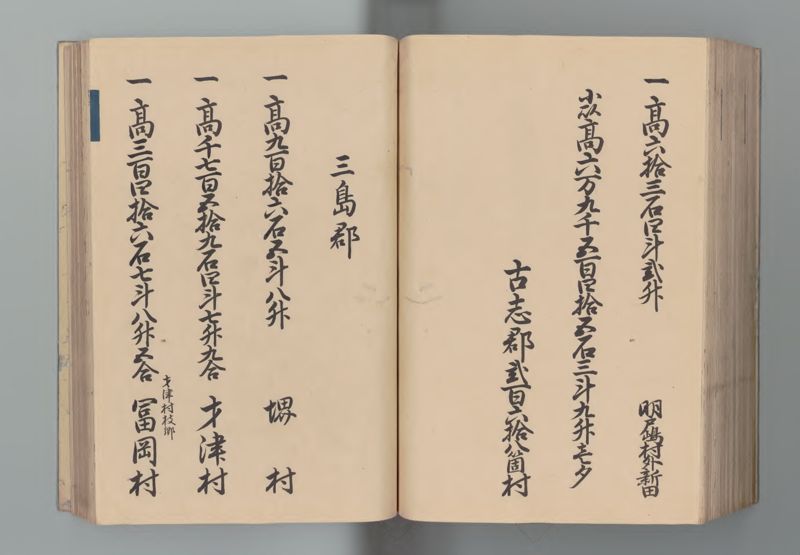 一高六拾三石四斗弐升 明戸嶋村外新田
小以高六万九千五百四拾五石三斗九升壱夕
古志郡弐百六拾八箇村
三島郡
一高九百拾六石五斗八升 堺村
一高千七百五拾九石四斗七升九合 才津村
才津村枝郷
一高三百四拾六石七斗八升五合 冨岡村